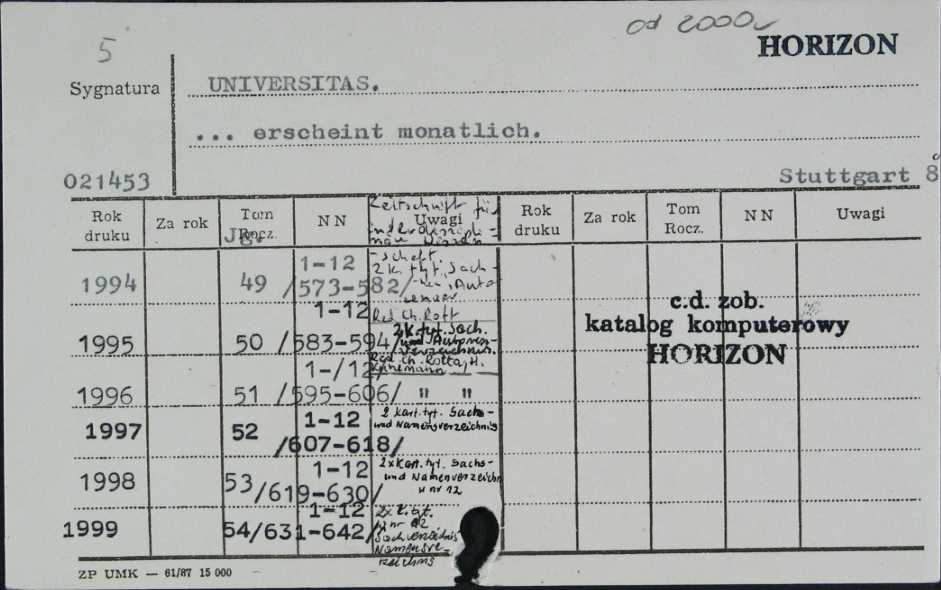 od 2000
HORIZON
5
Sygnatura
UNIVERSITAS.
... erscheint monatlich.
021453
Stuttgart 8
Rok druku Za rok Tom Rocz. Jg. NN Uwagi Rok druku Za rok Tom Rocz. NN Uwagi
Zeitschrift für
- schaft.
1994 49 1-12 /573-582/
2 k. tyt. Sach-
1995 50 1-12 /583-594/
2 k. tyt. Sach.
und
1996 51 1-/12/ /595-606/ " "
1997 52 1-12 /607-618/
2 kart. tyt. Sachs-
und Namensverzeichnis
1998 53 1-12 /619-630/
2x kart. tyt. Sachs-
und Namenverzeichn
w nr 12
1999 54 1-12 /631-642/
Sachverzeichnis
c.d. zob.
katalog komputerowy
HORIZON
ZP UMK — 61/87 15 000